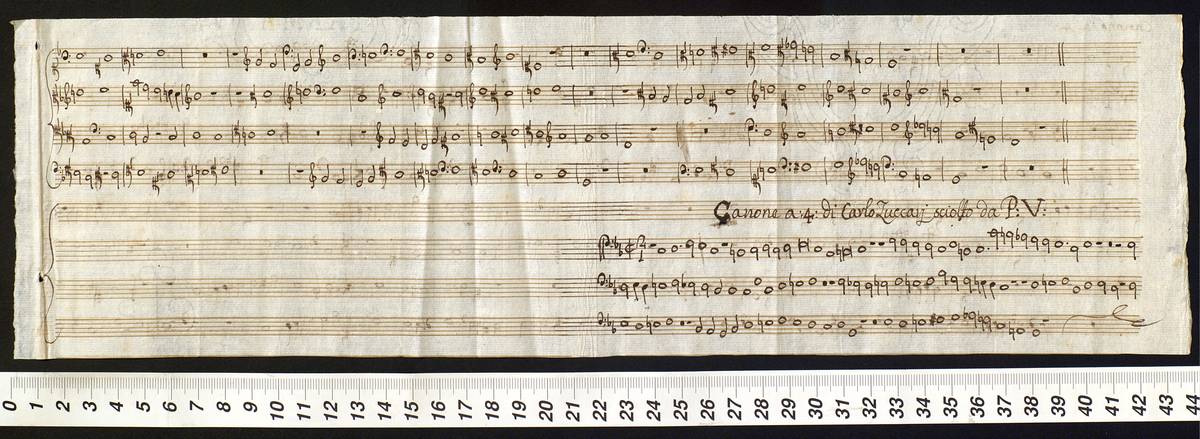 Canone a 4. di Carlo Zuccarj sciolto da P: V:
0 1 2 3 4 5 6 7 8 9 10 11 12 13 14 15 16 17 18 19 20 21 22 23 24 25 26 27 28 29 30 31 32 33 34 35 36 37 38 39 40 41 42 43 44